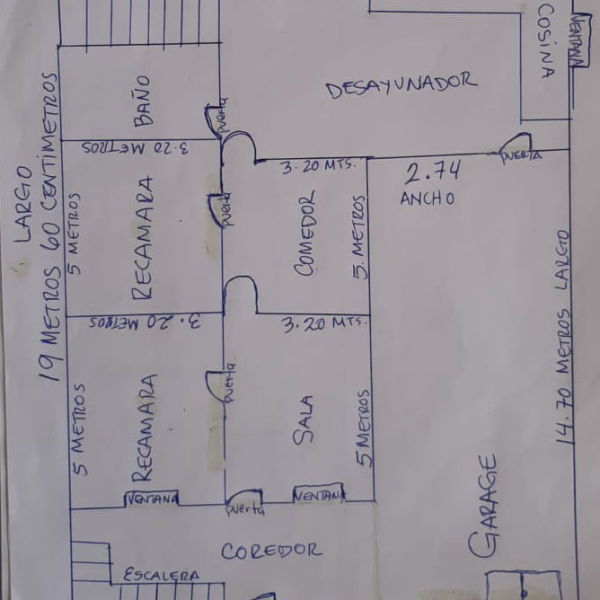 COSINA
VENTANA
DESAYUNADOR
BAÑO
puerta
LARGO
19 METROS 60 CENTIMETROS
3.20 METROS
3.20 MTS.
2.74
ANCHO
PUERTA
5 METROS
RECAMARA
puerta
COMEDOR
5. METROS
14.70 METROS LARGO
3.20 METROS
3.20 MTS.
5 METROS
RECAMARA
puerta
SALA
5 METROS
GARAGE
VENTANA
puerta
VENTANA
COREDOR
ESCALERA